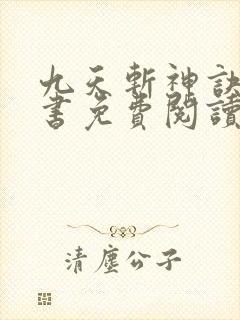 九天斬神訣
書免費閱讀
清塵公子